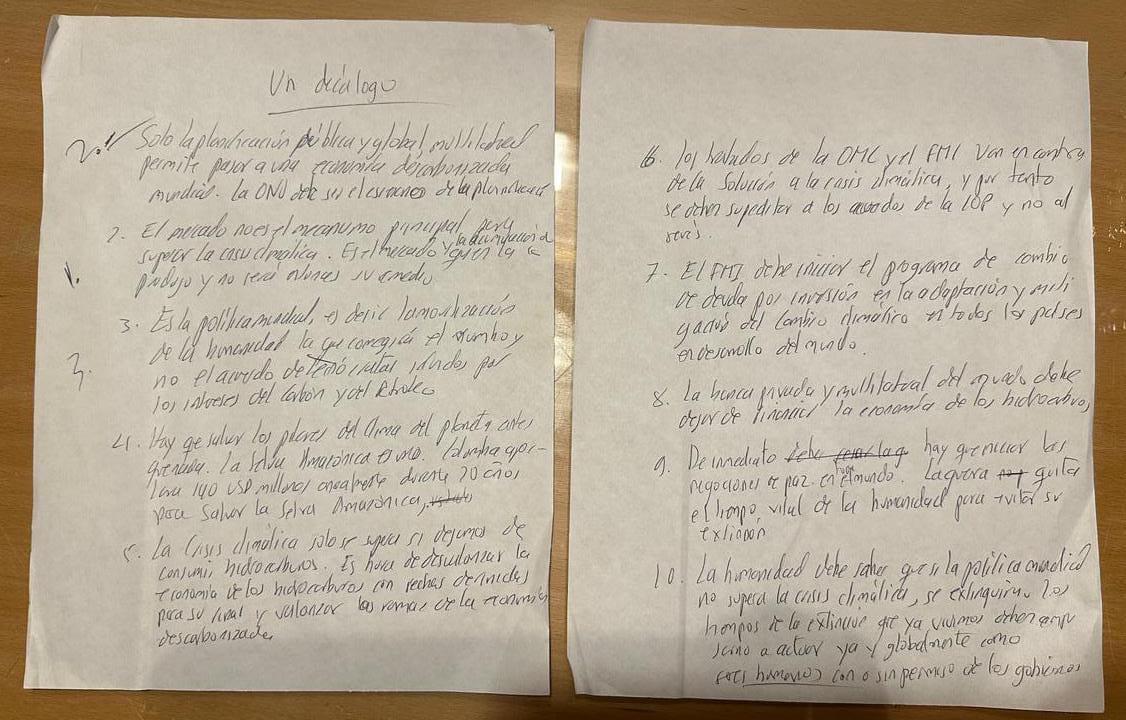 Un decálogo
2. Solo la planificación pública y global, multilateral
permite pasar a una economía descarbonizada
mundial. La ONU debe ser el escenario de la planificación
2. El mercado no es el mecanismo principal para
superar la crisis climática. Es el mercado y la acumulación d
quien la
produjo y no será nunca su remedio
1.
3. Es la política mundial, es decir la movilización
de la humanidad la que conseguirá el rumbo y
3. no el acuerdo de por
los intereses del carbón y del Petroleo
4. Hay que salvar los pilares del clima del planeta antes
que nada. La Selva Amazónica es uno. Colombia apor-
tara 140 USD millones anualmente durante 20 años
para salvar la selva Amazónica,
5. La Crisis climática solo se supera si dejamos de
consumir hidrocarburos. Es hora de desvalorizar la
economía de los hidrocarburos con fechas definidas
para su final y valorizar las ramas de la economía
descarbonizada
6. los tratados de la OMC y el FMI van en contra
de la solución a la crisis climática, y por tanto
se deben supeditar a los acuerdos de la COP y no al
revés.
7. El FMI debe iniciar el programa de cambio
de deuda por inversión en la adaptación y miti
gación del cambio climático en todos los países
en desarrollo del mundo.
8. La banca privada y multilateral del mundo debe
dejar de financiar la economía de los hidrocarburos
9. De inmediato hay que iniciar las
negociones de paz en el mundo. La guerra quita
el tiempo vital de la humanidad para evitar su
extinción
10. La humanidad debe saber que si la política mundial
no supera la crisis climática, se extinguirá. Los
tiempos de la extinción que ya vivimos deben
a actuar ya y globalmente como
seres humanos con o sin permiso de los gobiernos